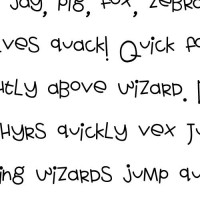 jay, pig, fox, zebra
lves quack! Quick fo
htly above wizard.
hyrs quickly vex ju
ing wizards jump qu